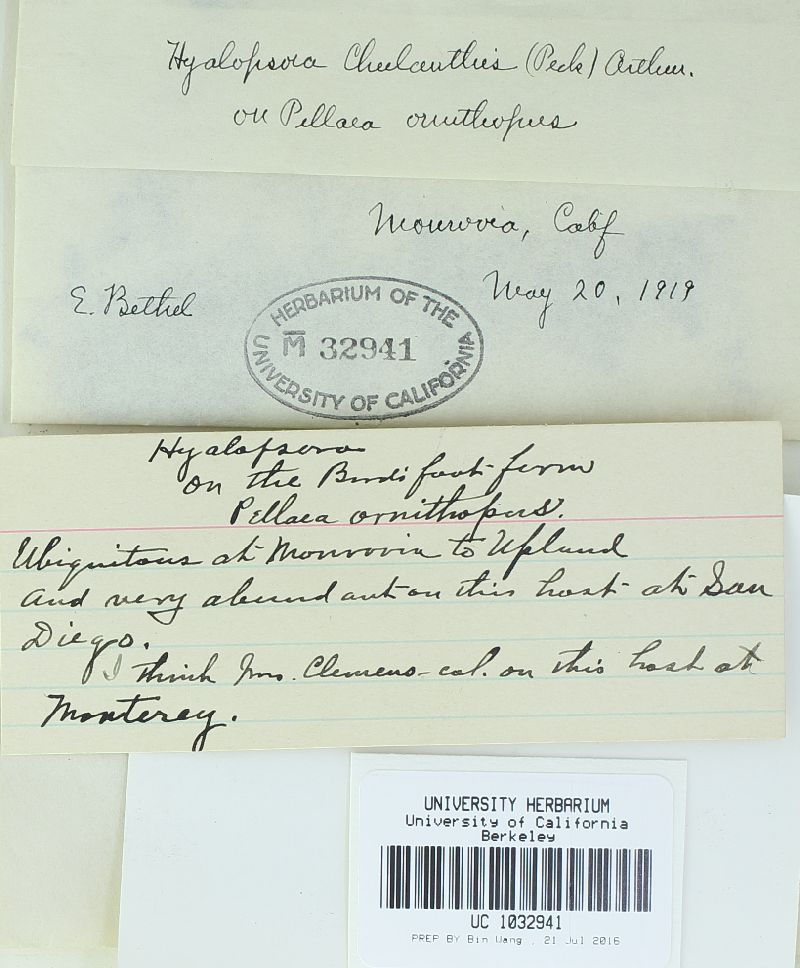 Hyalopsora Cheilanthis (Peck) Arthur.
on Pellaea ornithopus
Monrovia, Calif
May 20, 1919
E. Bethel
HERBARIUM OF THE
M 32941
UNIVERSITY OF CALIFORNIA
Hyalopsora
on the Birdsfoot-fern
Pellaea ornithopus.
Ubiquitous at Monrovia to Upland
and very abundant on this host at San
Diego.
I think Mrs. Clemens col. on this host at
Monterey.
UNIVERSITY HERBARIUM
University of California
Berkeley
UC 1032941
PREP BY Bin Wang , 21 Jul 2016